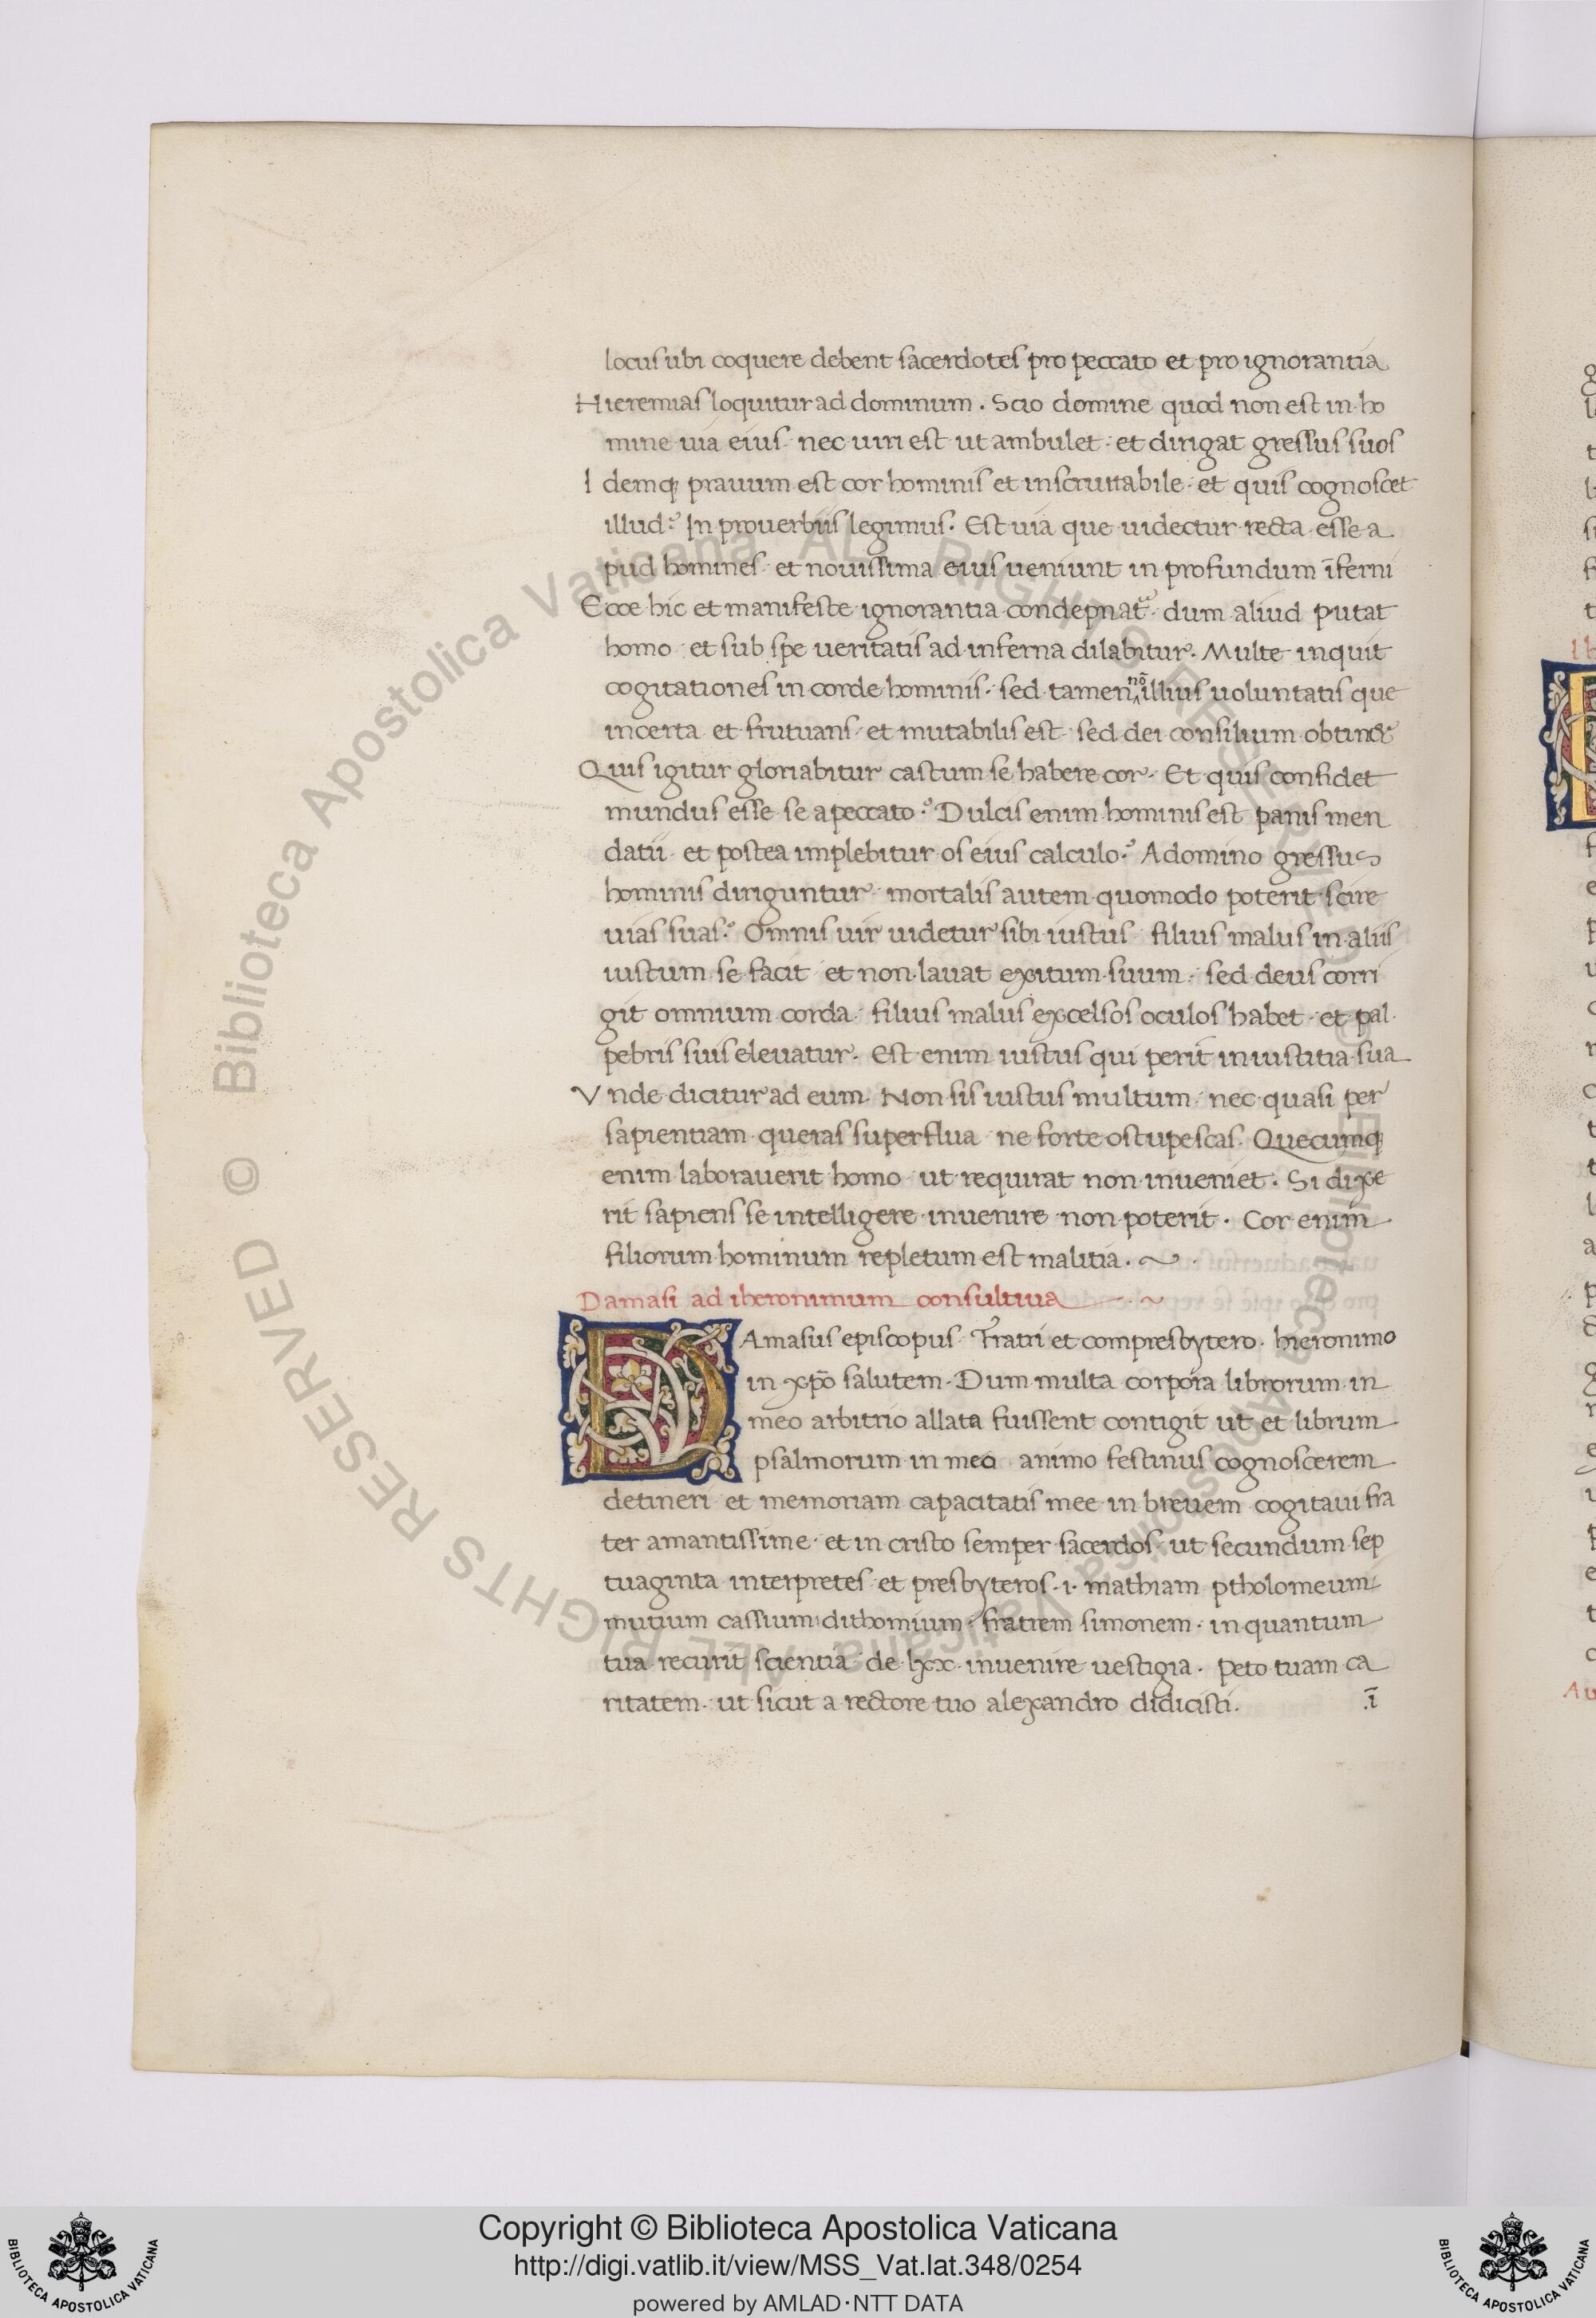 locus ubi coquere debent sacerdotes pro peccato et pro ignorantia
Hieremias loquitur ad dominum . Scio domine quod non est in ho
mine uia eius · nec uiri est ut ambulet · et dirigat gressus suos
I demqꝫ prauum est cor hominis et inscruttabile · et quis cognoscet
illud ? In prouerbiis legimus . Est uia que uidectur recta esse a
pud homines · et nouissima eius ueniunt in profundum īferni
Ecce hic et manifeste ignorantia condepnat᷑ · dum aliud putat
homo · et sub spe ueritatis ad inferna dilabitur . Multe inquit
cogitationes in corde hominis · sed tamen nō illius uoluntatis que
incerta et frutuans · et mutabilis est · sed dei consilium obtinet
Quis igitur gloriabitur castum se habere cor · Et quis confidet
mundus esse se a peccato ? Dulcis enim hominis est panis men
datii · et postea implebitur os eius calculo ? A domino gressus
hominis diriguntur · mortalis autem quomodo poterit scire
uias suas ? Omnis uir uidetur sibi iustus · filius malus in aliis
iustum se facit · et non lauat exitum suum · sed deus corri
git omnium corda · filius malus excelsos oculos habet · et pal
pebris suis eleuatur · Est enim iustus qui perit in iustitia sua
Vnde dicitur ad eum · Non sis iustus multum · nec quasi per
sapientiam queras superflua · ne forte ostupescas . Quecumqꝫ
enim laborauerit homo · ut requirat non inueniet . Si dixe
rit sapiens se intelligere inuenire non poterit . Cor enim
filiorum hominum repletum est malitia .
Damasi ad iheronimum consultiua
DAmasus episcopus · Fratri et compresbytero · hieronimo
in xp̄o salutem · Dum multa corpora librorum in
meo arbitrio allata fuissent contigit ut et librum
psalmorum in meo animo festinus cognoscerem
detineri et memoriam capacitatis mee in breuem cogitaui fra
ter amantissime · et in cristo semper sacerdos · ut secundum sep
tuaginta interpretes et presbyteros · i · mathiam ptholomeum
mutium cassium dithomium · fratrem simonem · in quantum
tua recurit scientia de lxx · inuenire uestigia . Peto tuam ca
ritatem · ut sicut a rectore tuo alexandro didicisti . .ī
© Biblioteca Apostolica Vaticana ALL RIGHTS RESERVED
© Biblioteca Apostolica Vaticana ALL RIGHTS RESERVED
Copyright © Biblioteca Apostolica Vaticana
http://digi.vatlib.it/view/MSS_Vat.lat.348/0254
powered by AMLAD·NTT DATA
BIBLIOTECA APOSTOLICA VATICANA
BIBLIOTECA APOSTOLICA VATICANA